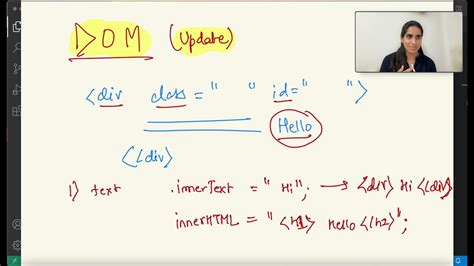 DOM (Update)
<div class = "      " id = "      ">
Hello
</div>
1) text .innerText = "Hi"; → <div> Hi </div>
innerHTML = "<h1> Hello </h2>";